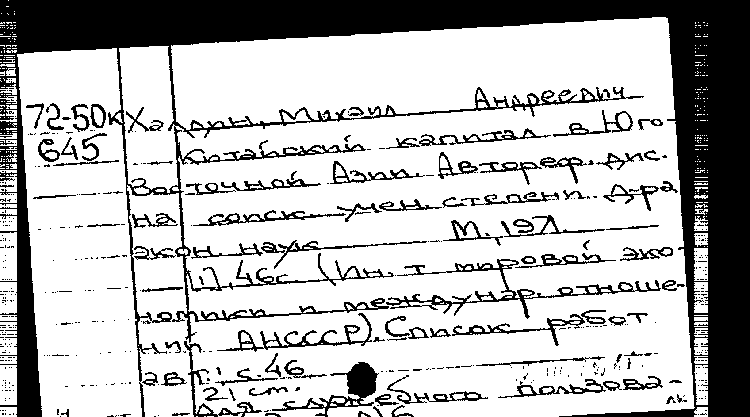 72-50к Халдин, Михаил Андреевич
645 Китайский капитал в Юго-
Восточной Азии. Автореф. дис.
на соиск. учен. степени д-ра
экон. наук М., 1971.
[1], 46с (Ин-т мировой эко-
номики и междунар. отноше-
ний АНСССР). Список работ
авт.: с. 46
21 ст.
Для служебного пользова-